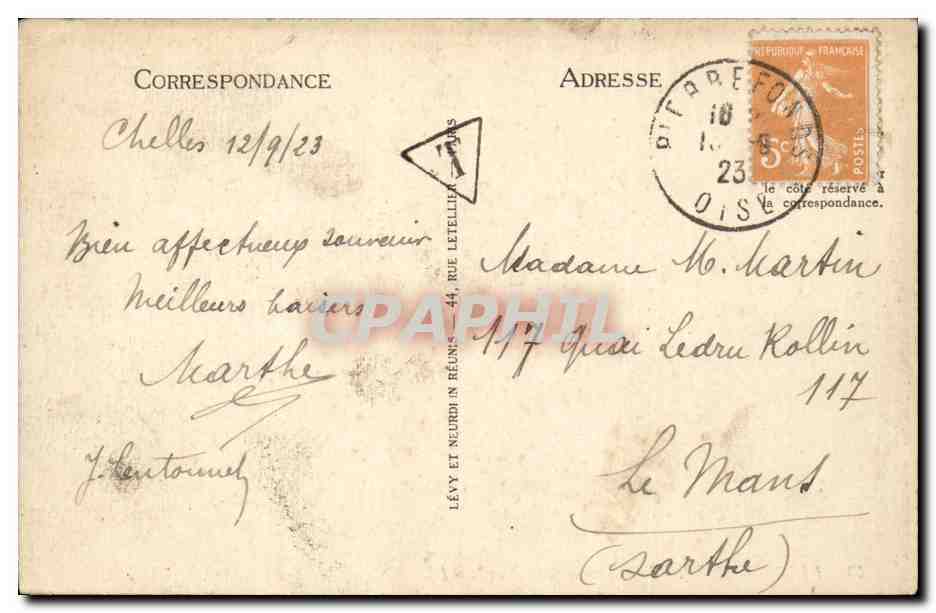 CORRESPONDANCE
ADRESSE
RÉPUBLIQUE FRANÇAISE
5c
POSTES
PIERREFONDS
18
23
OISE
le côté réservé à
la correspondance.
Chelles 12/9/23
T
Bien affectueux souvenir
Meilleurs baisers
Marthe
LÉVY ET NEURDEIN RÉUNIS 44, RUE LETELLIER
CPAPHIL
Madame M. Martin
117 Quai Ledru Rollin
117
Le Mans
(Sarthe)